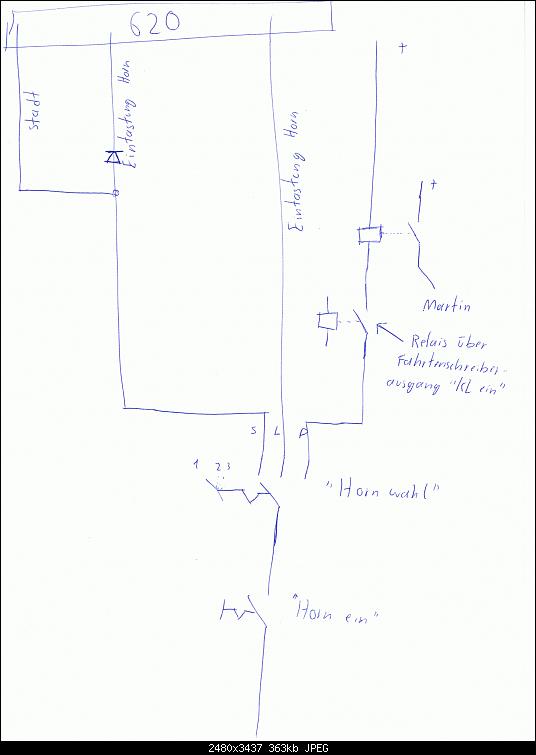 620
+
Stadt
Eintastung Horn
Eintastung Horn
+
Martin
Relais über
Fahrtenschreiber-
ausgang "KL ein"
S L P
1 2 3
"Horn wahl"
"Horn ein"
2480x3437 363kb JPEG